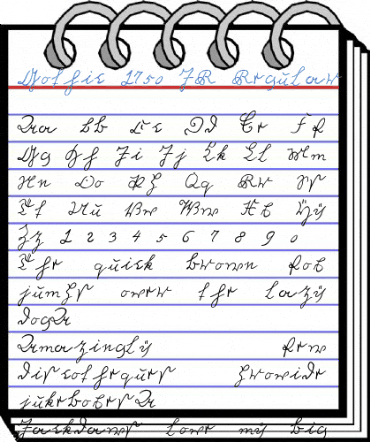 Gothic 1750 Regular
Aa Bb Cc Dd Ee Ff
Gg Hh Ii Jj Kk Ll Mm
Nn Oo Pp Qq Rr Ss
Tt Uu Vv Ww Xx Yy
Zz 1 2 3 4 5 6 7 8 9 0
The quick brown fox
jumps over the lazy
dog
Amazingly few
discotheques provide
jukeboxes
Jackdaws love my big